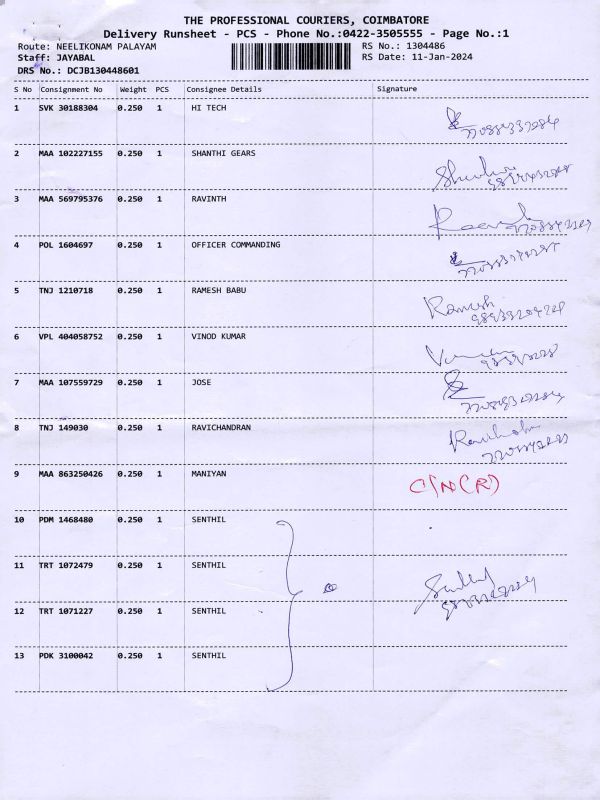 THE PROFESSIONAL COURIERS, COIMBATORE
Delivery Runsheet - PCS - Phone No.:0422-3505555 - Page No.:1
Route: NEELIKONAM PALAYAM RS No.: 1304486
Staff: JAYABAL RS Date: 11-Jan-2024
DRS No.: DCJB130448601
S No Consignment No Weight PCS Consignee Details Signature
1 SVK 30188304 0.250 1 HI TECH
2 MAA 102227155 0.250 1 SHANTHI GEARS
3 MAA 569795376 0.250 1 RAVINTH
4 POL 1604697 0.250 1 OFFICER COMMANDING
5 TNJ 1210718 0.250 1 RAMESH BABU Ramesh
6 VPL 404058752 0.250 1 VINOD KUMAR
7 MAA 107559729 0.250 1 JOSE
8 TNJ 149030 0.250 1 RAVICHANDRAN
9 MAA 863250426 0.250 1 MANIYAN C/N(R)
10 PDM 1468480 0.250 1 SENTHIL
11 TRT 1072479 0.250 1 SENTHIL
12 TRT 1071227 0.250 1 SENTHIL
13 PDK 3100042 0.250 1 SENTHIL